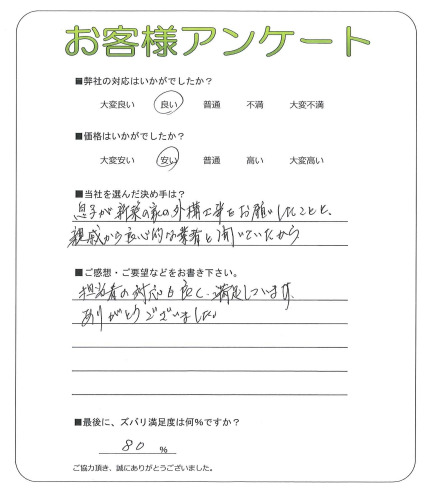 お客様アンケート
■弊社の対応はいかがでしたか?
大変良い 良い 普通 不満 大変不満
■価格はいかがでしたか?
大変安い 安い 普通 高い 大変高い
■当社を選んだ決め手は?
息子が新築の家の外構工事をお願いしたことと、
親戚から良心的な業者と聞いていたから
■ご感想・ご要望などをお書き下さい。
担当者の対応も良く、満足しています。
ありがとうございました。
■最後に、ズバリ満足度は何%ですか?
80 %
ご協力頂き、誠にありがとうございました。